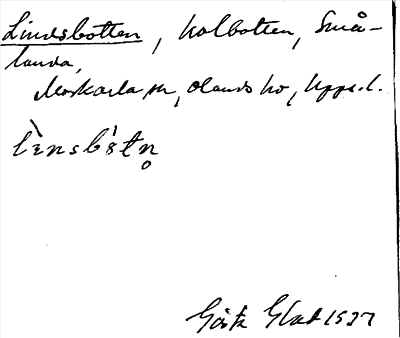 Lindsbotten, kolbotten, Små-
landa,
Morkarla sn, Olands hd, Uppl.
lènsbòtn̥
Gösta 1937